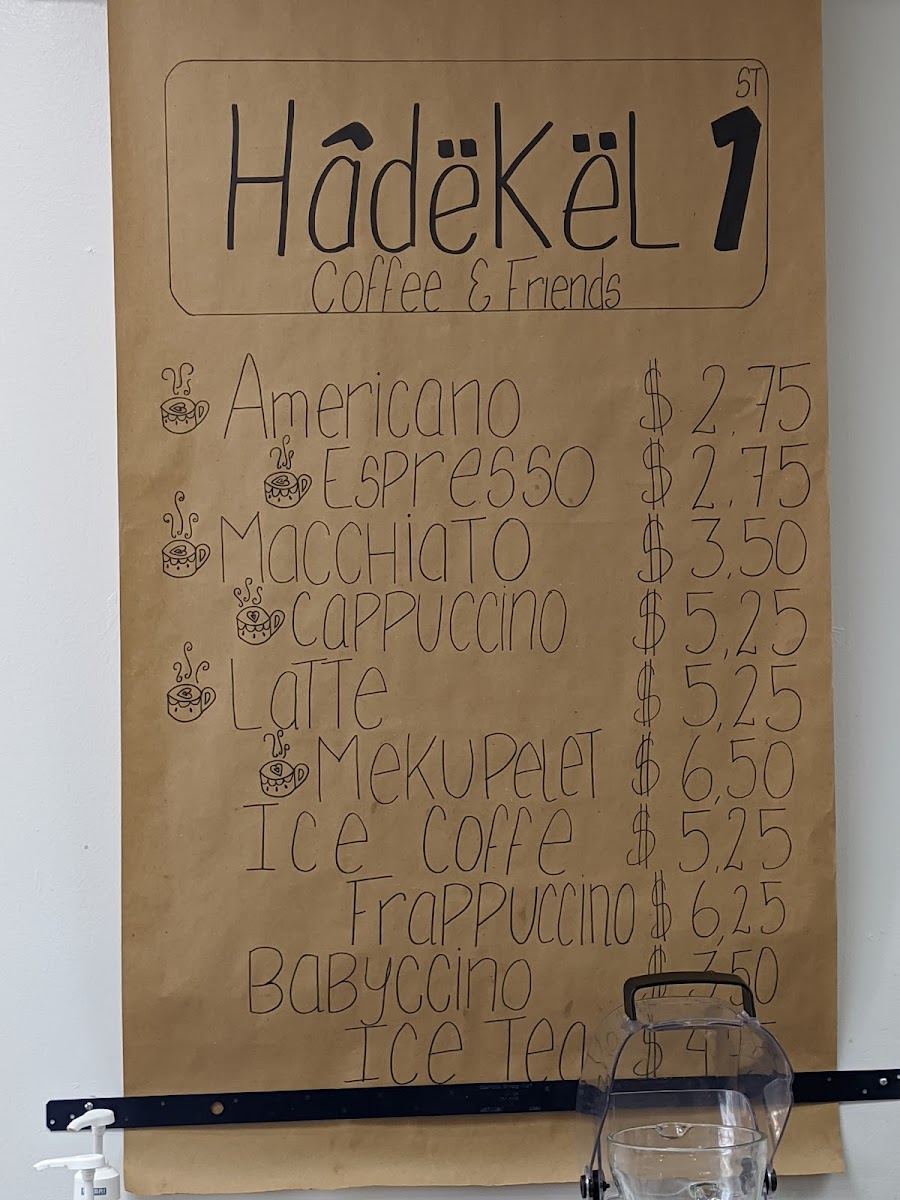 ST
Hâdëkël 1
Coffee & Friends
Americano $ 2,75
Espresso $ 2,75
Macchiato $ 3,50
Cappuccino $ 5,25
Latte $ 5,25
Mekupelet $ 6,50
Ice Coffe $ 5,25
Frappuccino $ 6,25
Babyccino $ 3,50
Ice Tea $